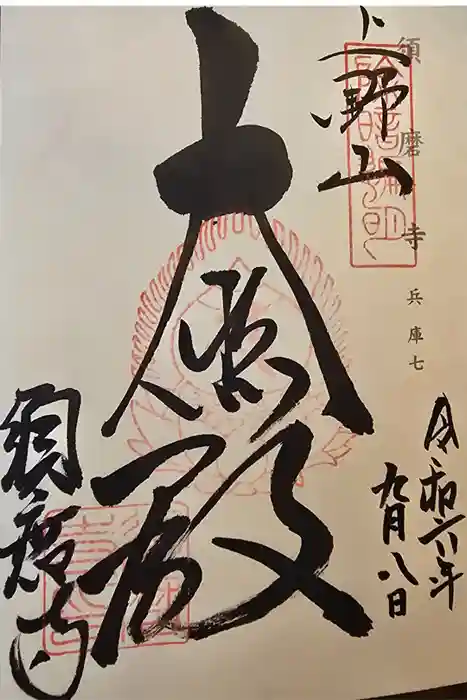 須磨寺 兵庫七
上野山
令和六年
九月八日
大悲殿
須磨寺